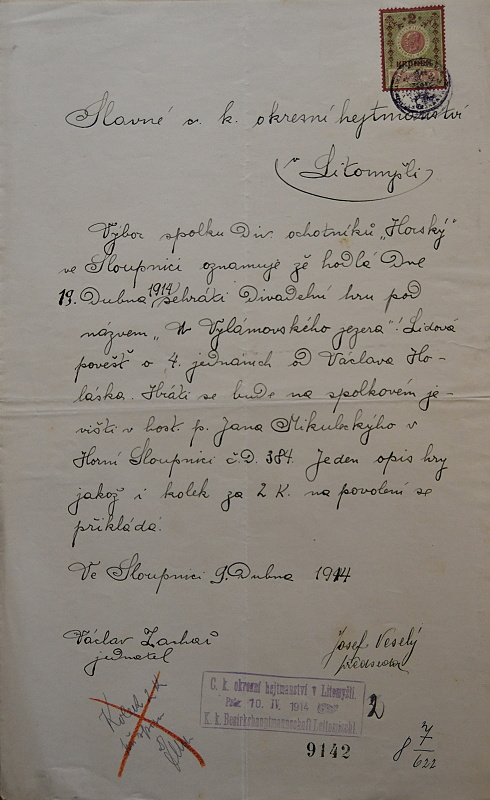 2
Slavné c. k. okresní hejtmanství
v
Litomyšli
Výbor spolku Div. ochotníků „Horský“
ve Sloupnici oznamuje že hodlá Dne
19. Dubna 1914 sehráti Divadelní hru pod
názvem „U Vylámovského jezera“! Lidová
pověsť o 4. jednáních od Václava Ho-
láska. Hráti se bude na spolkovém je-
višti v host. p. Jana Mikuleckýho v
Horní Sloupnici č. D. 384. Jeden opis hry
jakož i kolek za 2 K. na povolení se
přikládá.
Ve Sloupnici 9. Dubna 1914
Václav Zachař
jednatel
Josef Veselý
předseda
C. k. okresní hejtmanství v Litomyšli.
10. IV. 1914
K. k. Bezirkshauptmannschaft Leitomischl.
2
9142
8 7/622